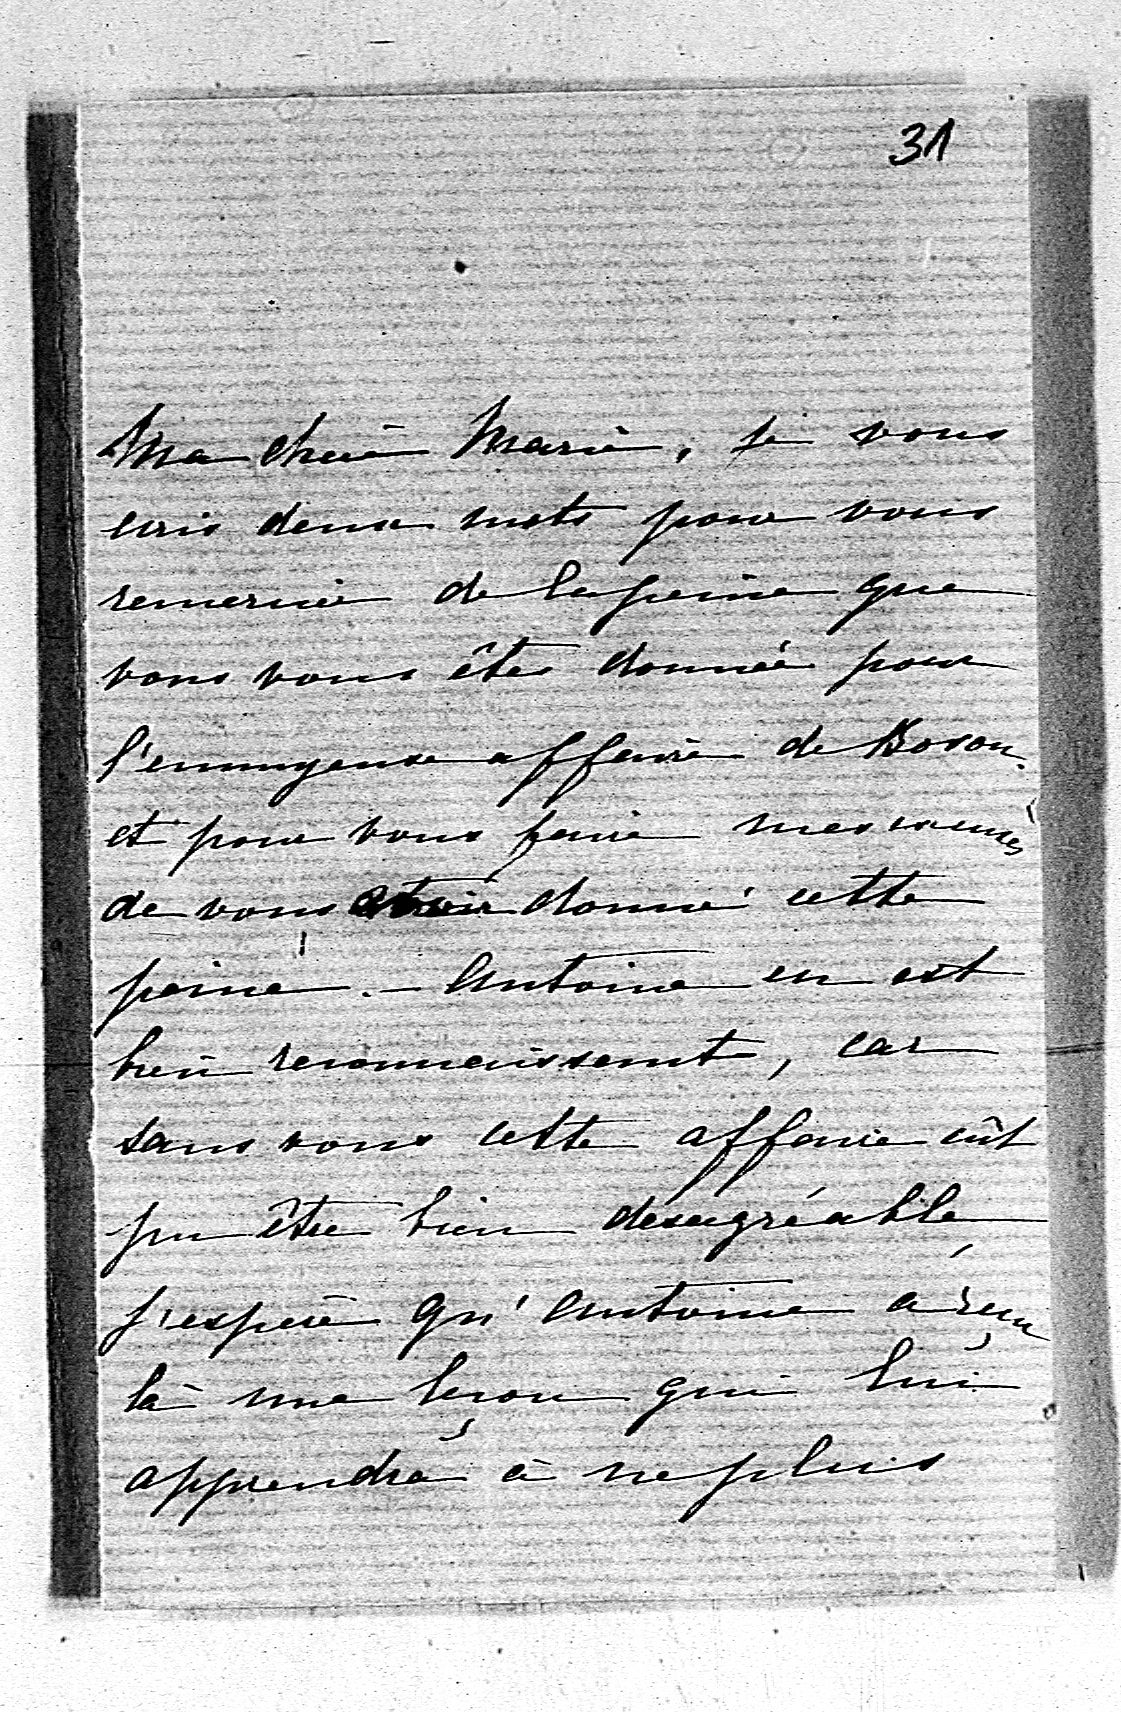 31
Ma chère Marie, je vous
écris deux mots pour vous
remercier de la peine que
vous vous êtes donnée pour
l'ennuyeuse affaire de Boson
et pour vous faire mes excuses
de vous avoir donné cette
peine. — Antoine en est
bien reconnaissant, car
sans vous cette affaire eût
pu être bien désagréable
j'espère qu'Antoine a reçu
là une leçon qui lui
apprendra à ne plus